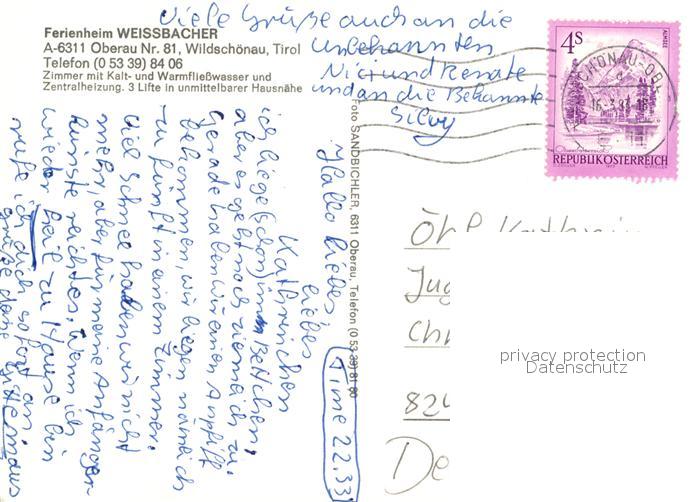 Ferienheim WEISSBACHER
A-6311 Oberau Nr. 81, Wildschönau, Tirol
Telefon (0 53 39) 84 06
Zimmer mit Kalt- und Warmfließwasser und
Zentralheizung. 3 Lifte in unmittelbarer Hausnähe
Viele Grüße auch an die
unbekannten
Nici und Renate
und an die Bekannte
Silvy
4S
REPUBLIK ÖSTERREICH
Foto SANDBICHLER, 6311 Oberau, Telefon (0 53 39) 81 80
Time 22.33
Hallo liebes,
liebes
Kathreinchen
ich liege schon im Bettchen,
aber es geht noch ziemlich zu.
Gerade haben wir einen Anpfiff
bekommen, wir liegen nämlich
zu fünft in einem Zimmer.
Viel Schnee haben wir nicht
mehr, aber für meine Anfänger-
künste reicht es. Wenn ich
wieder heil zu Hause bin
rufe ich dich sofort an
grüße deine
Jug
Ch
824
De
privacy protection
Datenschutz